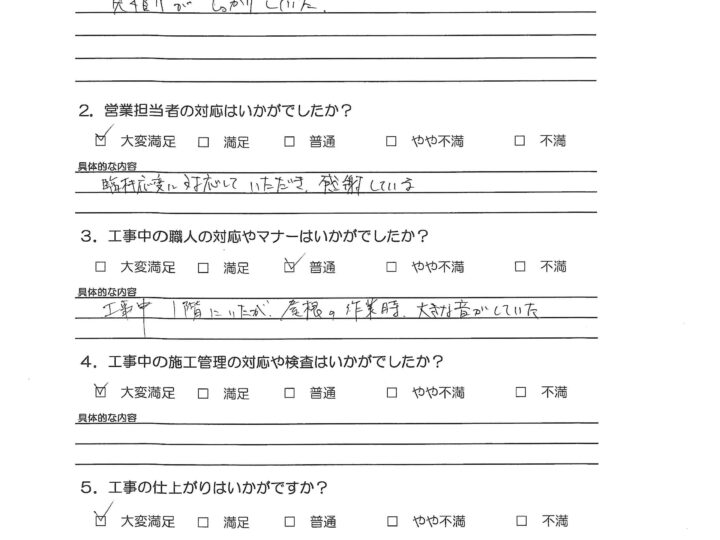 見積りがしっかりしていた.
2. 営業担当者の対応はいかがでしたか？
☑ 大変満足 □ 満足 □ 普通 □ やや不満 □ 不満
具体的な内容
臨機応変に対応していただき、感謝している
3. 工事中の職人の対応やマナーはいかがでしたか？
□ 大変満足 □ 満足 ☑ 普通 □ やや不満 □ 不満
具体的な内容
工事中 1階にいたが、屋根の作業時、大きな音がしていた
4. 工事中の施工管理の対応や検査はいかがでしたか？
☑ 大変満足 □ 満足 □ 普通 □ やや不満 □ 不満
具体的な内容
5. 工事の仕上がりはいかがですか？
☑ 大変満足 □ 満足 □ 普通 □ やや不満 □ 不満